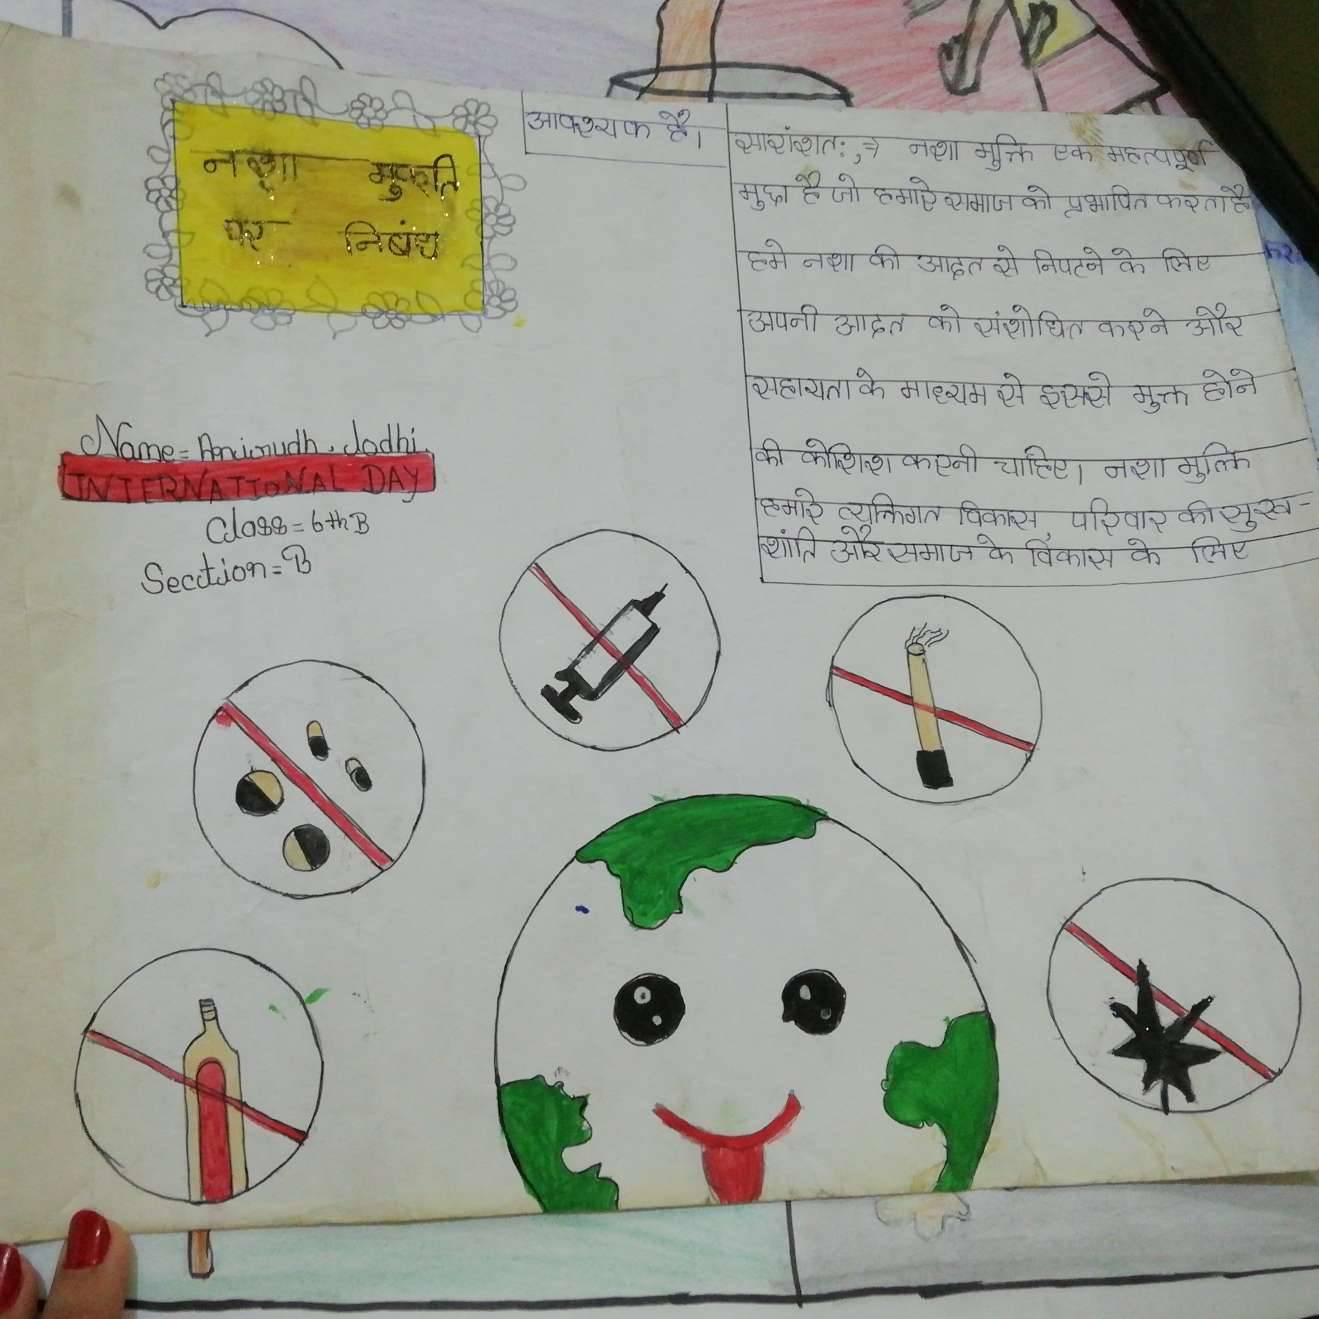 नशा मुक्ति
पर निबंध
Name = Anirudh. Jodhi.
INTERNATIONAL DAY
Class = 6th B
Secction = B
आवश्यक है।
सारांशतः,⇒ नशा मुक्ति एक महत्वपूर्ण
मुद्दा है जो हमारे समाज को प्रभावित करता है
हमे नशा की आदत से निपटने के लिए
अपनी आदत को संशोधित करने और
सहायता के माध्यम से इससे मुक्त होने
की कोशिश करनी चाहिए। नशा मुक्ति
हमारे व्यक्तिगत विकास परिवार की सुख-
शांति और समाज के विकास के लिए